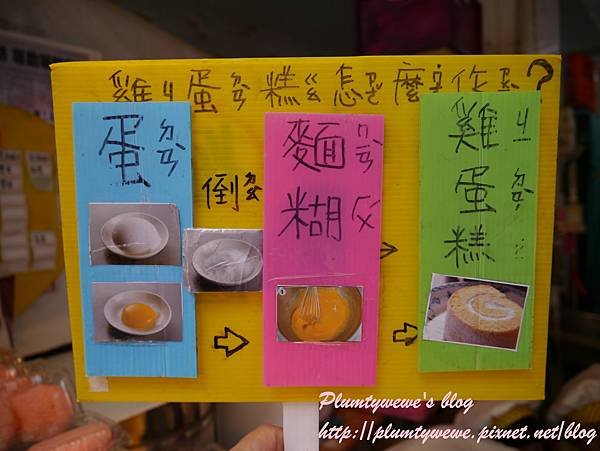 雞ㄐ蛋ㄉㄢ糕ㄍ怎ㄗ麼ㄇ作ㄗ?
蛋ㄉㄢ
倒ㄉㄠ
麵ㄇㄢ
糊ㄏㄨ
雞ㄐ
蛋ㄉㄢ
糕
Plumtywewe's blog
http://plumtywewe.pixnet.net/blog